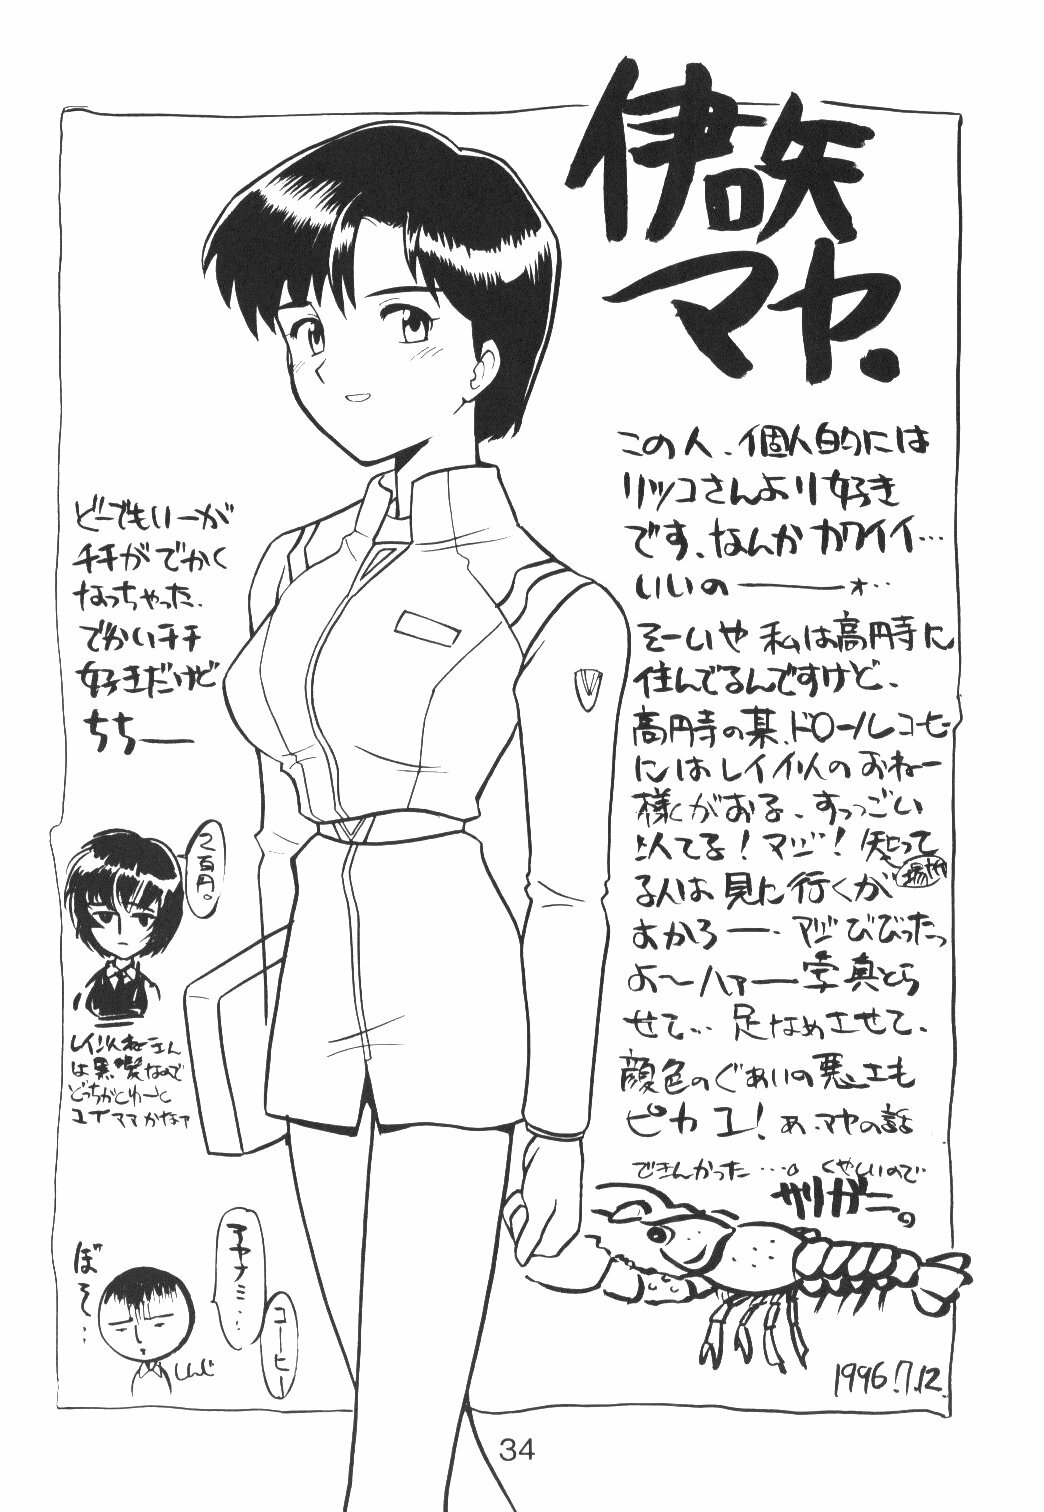 伊吹マヤ.
この人、個人的には
リツコさんより好き
です、なんかカワイイ…
いいのーォ…
そーいや私は高円寺に
住んでるんですけど、
高円寺の某、ドロールコヒー
にはレイ似のおねー
様がおる、すっごい
似てる!マジ!知って
る人は見に行くが
場所
よかろー、マジびびったっ
よ〜ハァー写真とら
せて…足なめさせて、
顔色のぐあいの悪さも
ピカ一!あ、マヤの話
できんかった…。くやしいので
ザリガニ。
1996.7.12.
どーでもいーが
チチがでかく
なっちゃった、
でかいチチ
好きだけど
ちちー
2百円。
レイ似ねーさん
は黒髪なので
どっちかとゆーと
ユイママかなァ
ぼそ…
アヤナミ…
コーヒー
しんじ
34